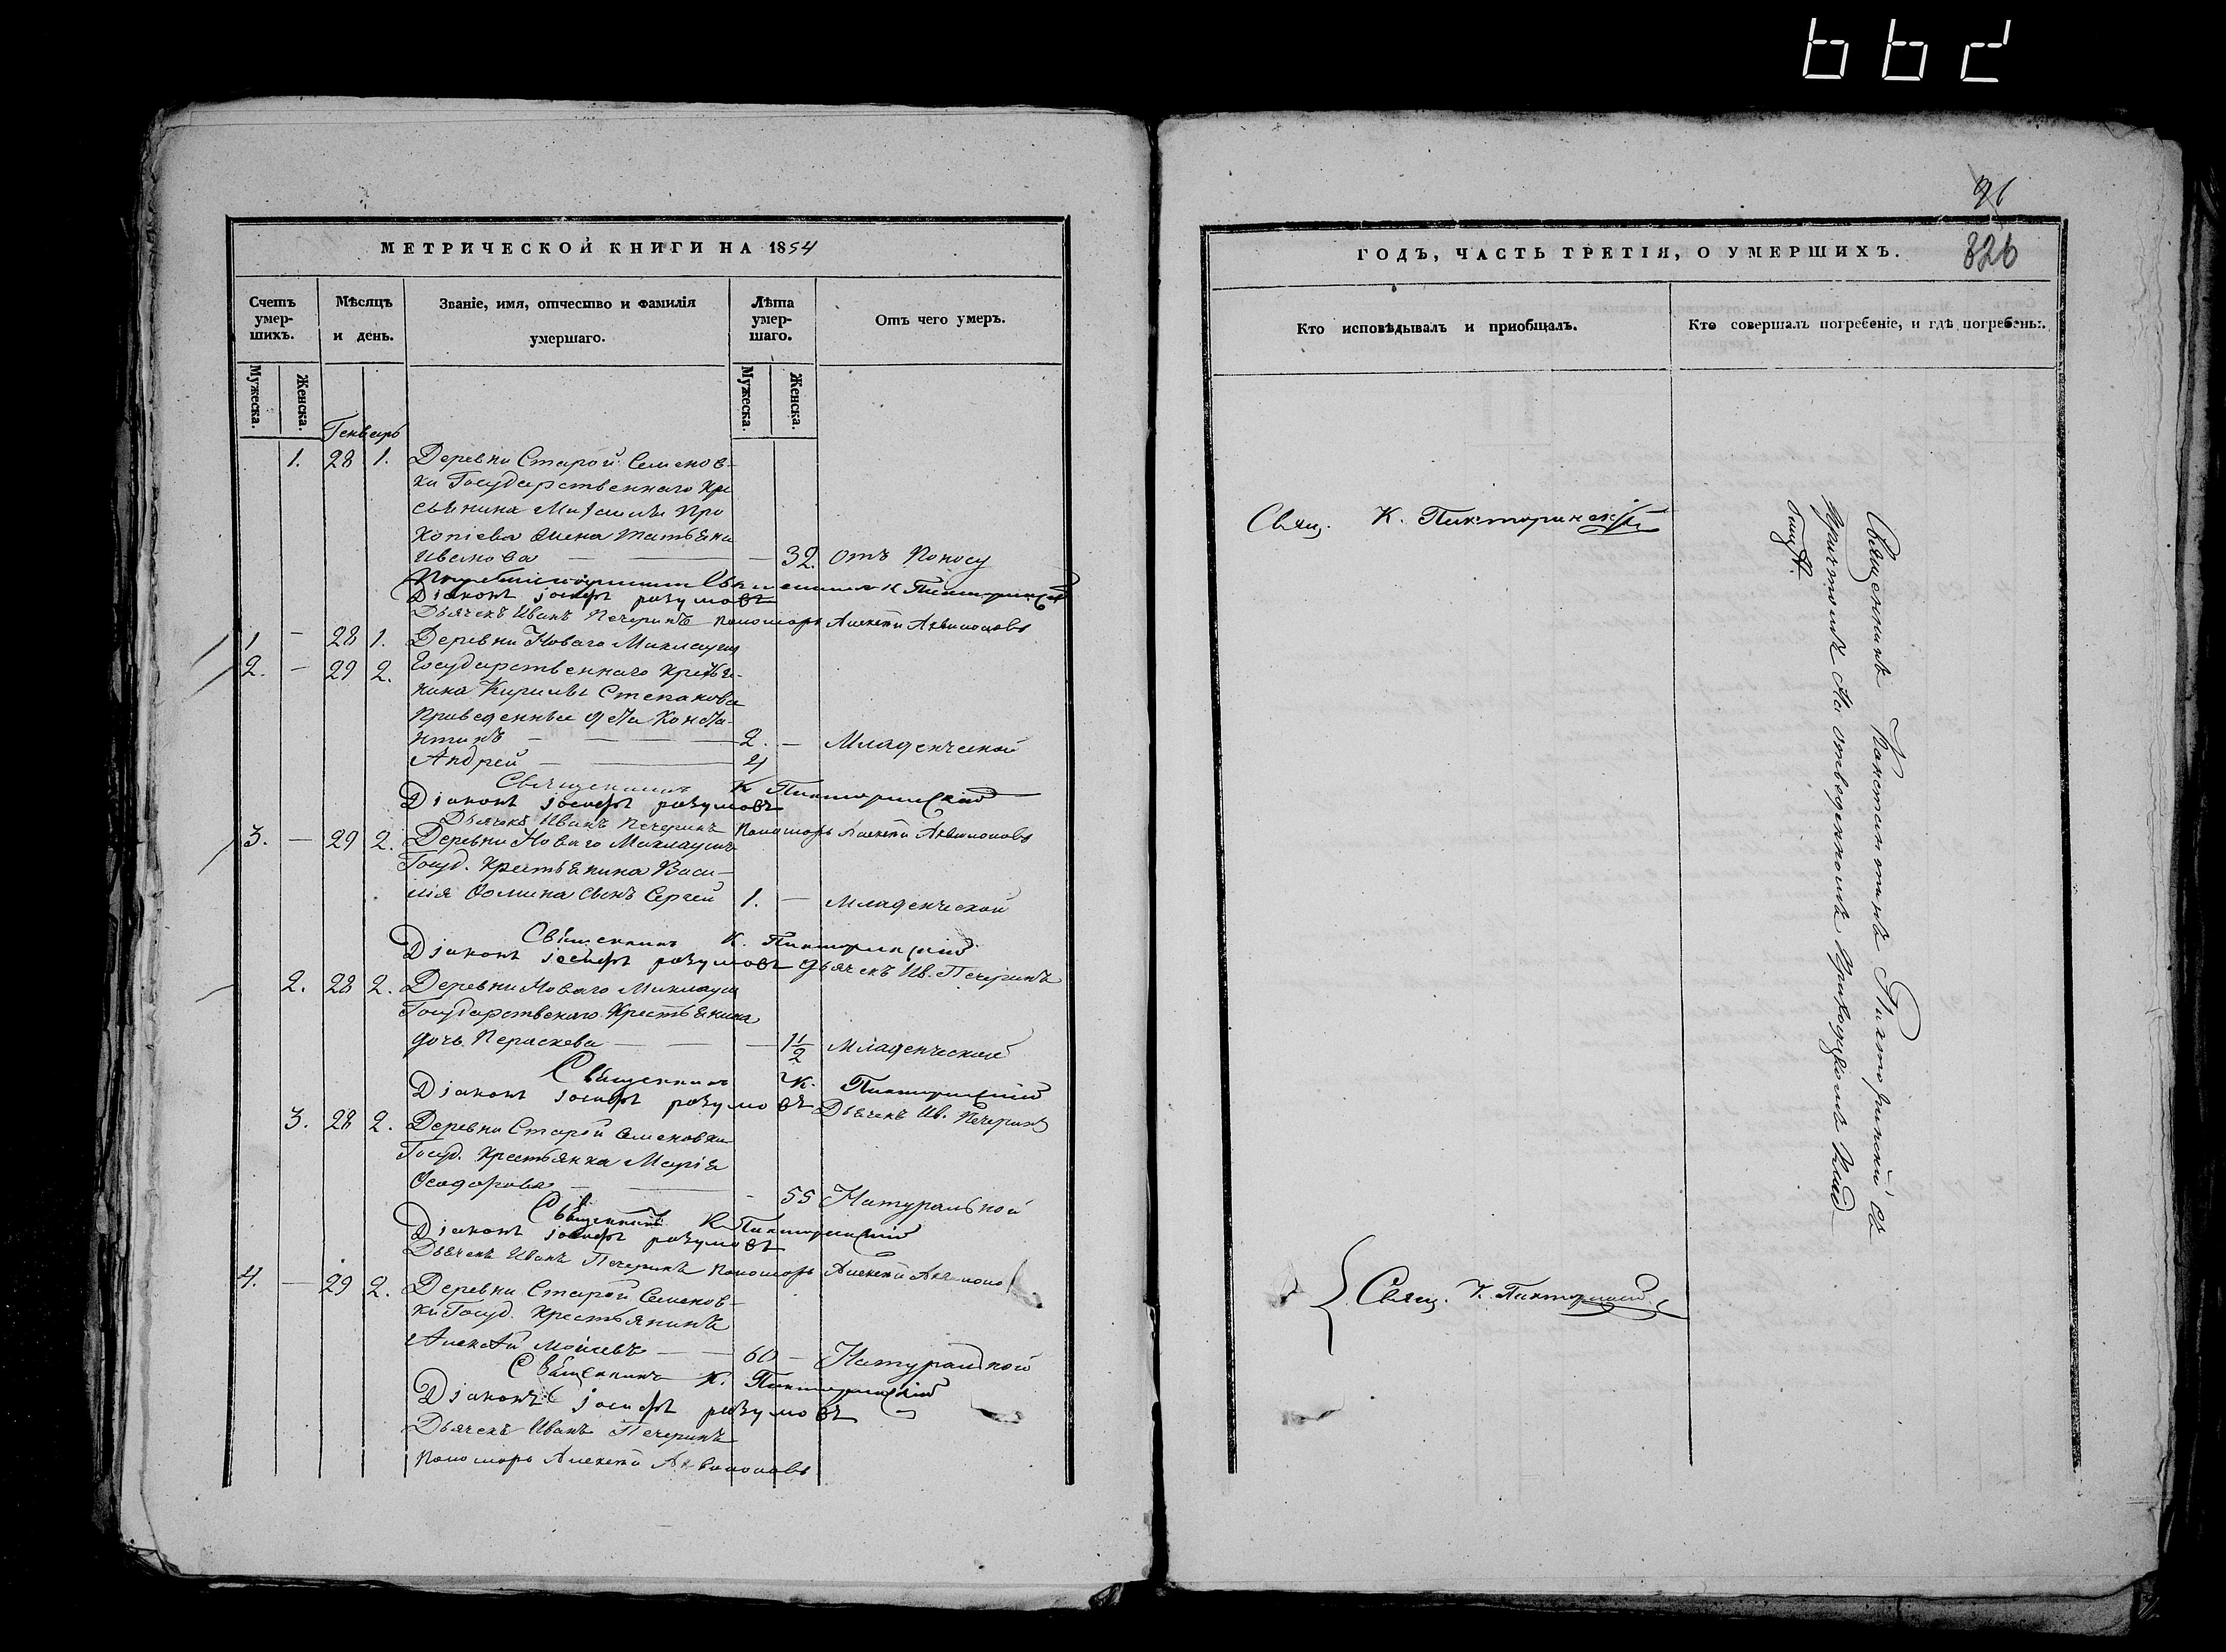 662
МЕТРИЧЕСКОЙ КНИГИ НА 1854
Счетъ умер-шихъ.
Мѣсяцъ и день.
Званіе, имя, отчество и фамилія умершаго.
Лѣта умер-шаго.
Отъ чего умеръ.
Мужеска.
Женска.
Мужеска.
Женска.
Генварь
1. 28 1. Деревни Старой Семенов-
ки Государственнаго Кре
стьянина Михаилы Про
копіева жена Татьяна
Иванова — 32. отъ Поносу
Діаконъ Іосифъ Разумовъ
Дьячекъ Иванъ Печеринъ Пономарь Алексѣй Аквилоновъ
1 - 28 1. Деревни Новаго Миклауша
2. - 29 2. Государственнаго Крестья-
нина Кирилы Степанова
Приведенные дѣти Конста-
нтинъ — 2. - Младенческой
Андрей — 4
Священникъ К Пикторинскій
Діаконъ Іосифъ Разумовъ
Дьячекъ Иванъ Печеринъ Пономарь Алексѣй Аквилоновъ
3. - 29 2. Деревни Новаго Миклауша
Госуд. Крестьянина Васи-
лія Фомина сынъ Сергей 1. - Младенческой
Священникъ К. Пикторинскій
Діаконъ Іосифъ Разумовъ Дьячекъ Ив. Печеринъ
2. 28 2. Деревни Новаго Миклауша
Государственаго Крестьянина
дочь Параскева — 1 1/2 Младенческой
Священникъ К. Пикторинскій
Діаконъ Іосифъ Разумовъ Дьячекъ Ив. Печеринъ
3. 28 2. Деревни Старой Семеновки
Госуд. Крестьянка Марія
Ѳеодорова — 55 Натуральной
Священникъ К. Пикторинскій
Діаконъ Іосифъ Разумовъ
Дьячекъ Иванъ Печеринъ Пономарь Алексѣй Аквилоно
4. - 29 2. Деревни Старой Семенов-
ки Госуд. Крестьянинъ
Алексѣй Моисеевъ — 60 - Натуральной
Священникъ К. Пикторинскій
Діаконъ Іосифъ Разумовъ
Дьячекъ Иванъ Печеринъ
Пономарь Алексѣй Аквилоновъ
96
826
ГОДЪ, ЧАСТЬ ТРЕТІЯ, О УМЕРШИХЪ.
Кто исповѣдывалъ и приобщалъ.
Кто совершалъ погребеніе, и гдѣ погребены.
Свящ. К. Пикторинскій
Священникъ Константинъ Пикторинскій съ
Причтомъ На отведенномъ Приходскомъ Клад
бищѣ.
Свящ. К. Пикторинскій